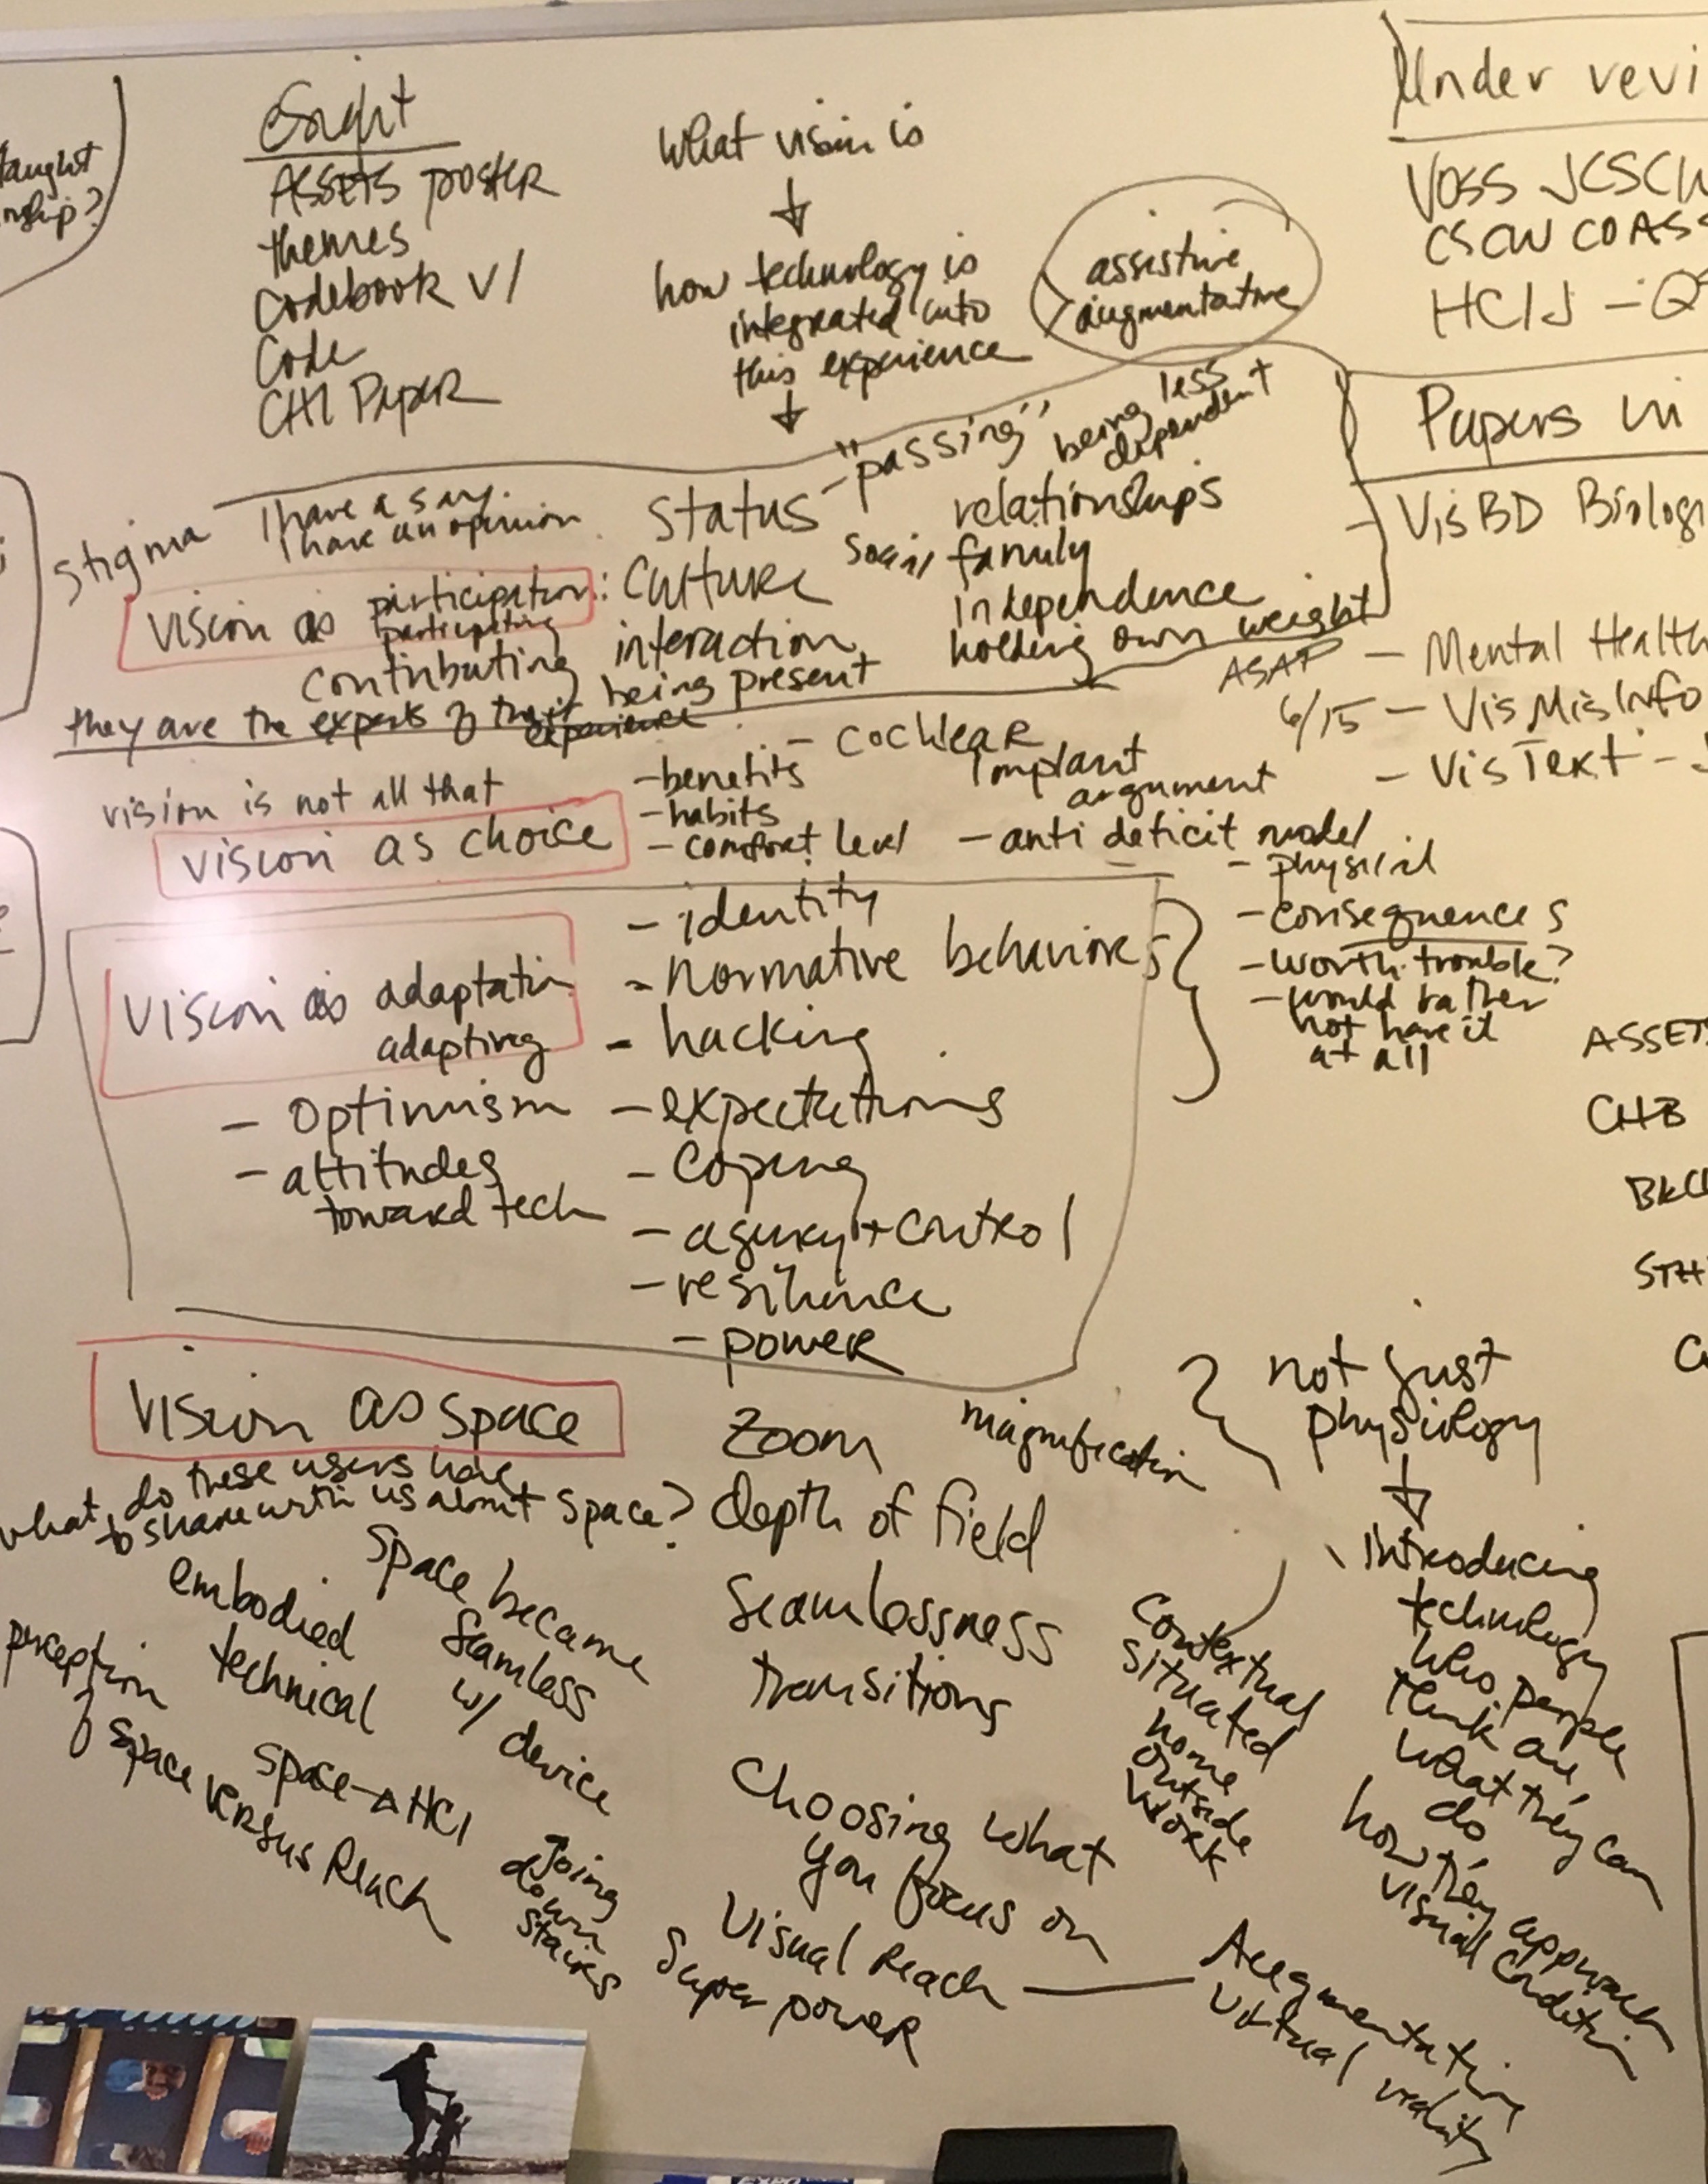 taught
eSight
ASSETS poster
themes
Codebook V1
Code
CHI Paper
What vision is
how technology is
integrated into
this experience
assistive
augmentative
Under revi
VOSS JCSCW
CSCW COASS
HCIJ -
Papers in
- VisBD Biologi
ASAP - Mental Health
6/15 - VisMisInfo
- VisText -
Stigma
I have a say.
I have an opinion
Status - "passing" being less
dependent
relationships
Social family
independence
holding own weight
vision as participation:
participating
contributing
culture
interaction
being present
they are the experts of their
experience
vision is not all that
vision as choice
- benefits
- habits
- comfort level
- Cochlear
Implant
argument
- anti deficit model
- physical
- consequences
- worth trouble?
- would rather
not have it
at all
vision as adaptation
adapting
- optimism
- attitudes
toward tech
- identity
- normative behaviors
- hacking
- expectations
- coping
- agency + control
- resilience
- power
ASSETS
CHB
vision as space
what do these users have
to share with us about space?
zoom
magnification
depth of field
seamlessness
transitions
choosing what
you focus on
visual reach
super power
Augmentation
virtual reality
space became
seamless
w/ device
embodied
technical
perception
of space
space → HCI
space versus Reach
going
down
stairs
contextual
situated
home
outside
work
not just
physiology
introducing
technology
who people
think are,
what they can
do
how they approach
visual condition